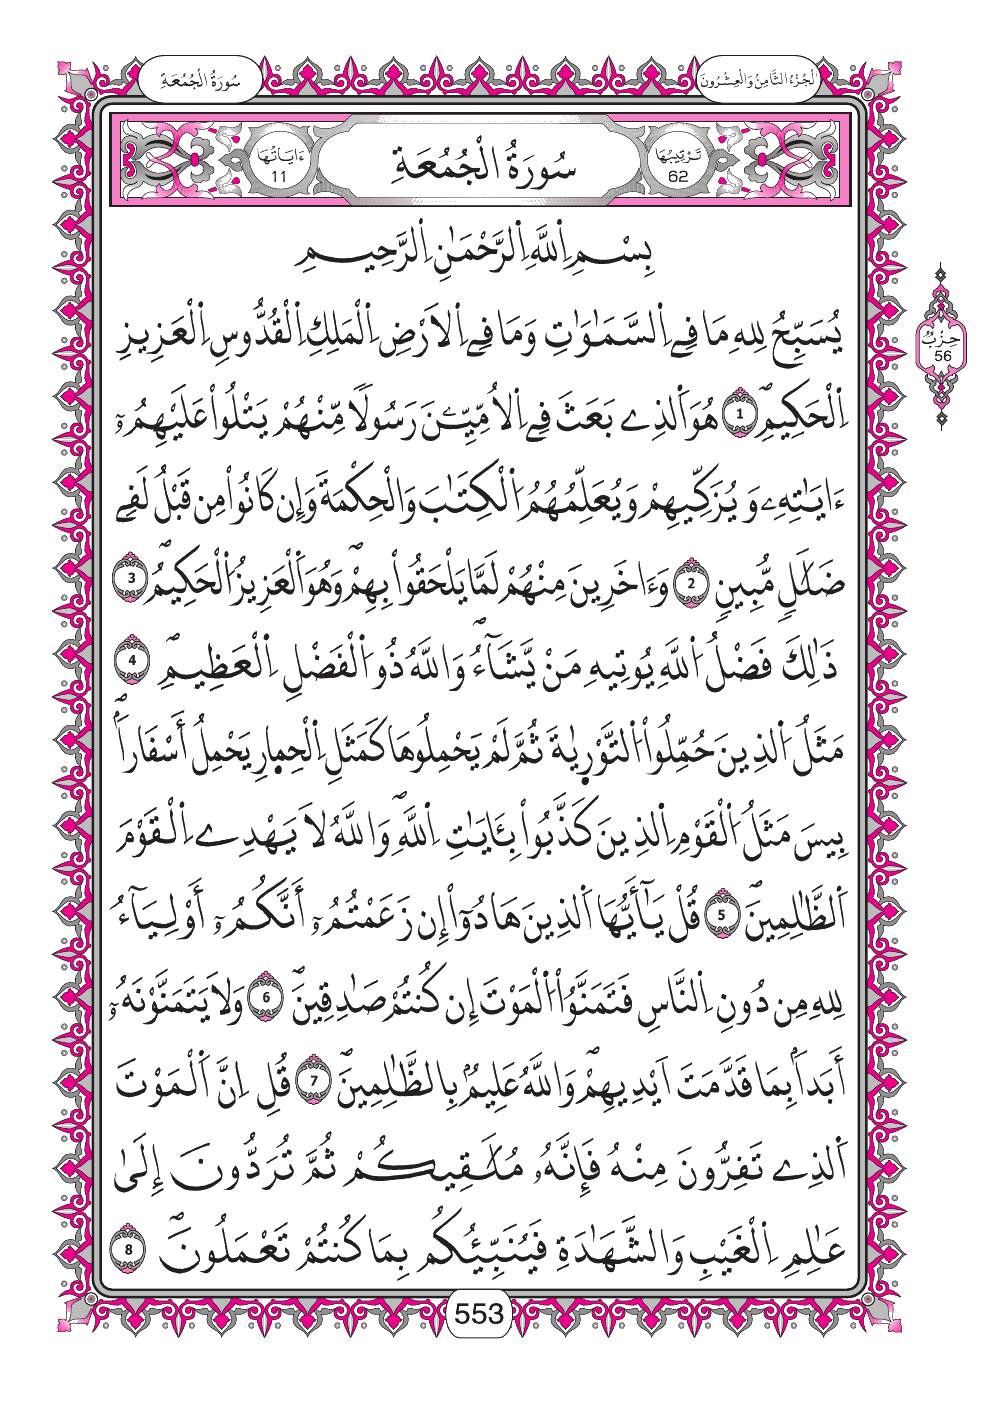 سُورَةُ الْجُمُعَةِ
الْجُزْءُ الثَّامِنُ وَالْعِشْرُونَ
تَرْتِيبُهَا 62
سُورَةُ الْجُمُعَةِ
ءَايَاتُهَا 11
بِسْمِ اِ۬للَّهِ اِ۬لرَّحْمَٰنِ اِ۬لرَّحِيمِ
يُسَبِّحُ لِلهِ مَا فِے اِ۬لسَّمَٰوَٰتِ وَمَا فِے اِ۬لَارْضِ اِ۬لْمَلِكِ اِ۬لْقُدُّوسِ اِ۬لْعَزِيزِ
حِزْبٌ 56
اِ۬لْحَكِيمِۖ 1 هُوَ اَ۬لذِے بَعَثَ فِے اِ۬لُامِّيِّـۧنَ رَسُولاٗ مِّنْهُمْ يَتْلُواْ عَلَيْهِمُۥٓ
ءَايَٰتِهِۦ وَيُزَكِّيهِمْ وَيُعَلِّمُهُمُ اُ۬لْكِتَٰبَ وَالْحِكْمَةَ وَإِن كَانُواْ مِن قَبْلُ لَفِے
ضَلَٰلٖ مُّبِينٖ 2 وَءَاخَرِينَ مِنْهُمْ لَمَّا يَلْحَقُواْ بِهِمْۖ وَهُوَ اَ۬لْعَزِيزُ اُ۬لْحَكِيمُۖ 3
ذَٰلِكَ فَضْلُ اُ۬للَّهِ يُوتِيهِ مَنْ يَّشَآءُۖ وَاللَّهُ ذُو اُ۬لْفَضْلِ اِ۬لْعَظِيمِۖ 4
مَثَلُ اُ۬لذِينَ حُمِّلُواْ اُ۬لتَّوْر۪يٰةَ ثُمَّ لَمْ يَحْمِلُوهَا كَمَثَلِ اِ۬لْحِم۪ارِ يَحْمِلُ أَسْفَاراَۢۖ
بِيسَ مَثَلُ اُ۬لْقَوْمِ اِ۬لذِينَ كَذَّبُواْ بِـَٔايَٰتِ اِ۬للَّهِۖ وَاللَّهُ لَا يَهْدِے اِ۬لْقَوْمَ
اَ۬لظَّٰلِمِينَۖ 5 قُلْ يَٰٓأَيُّهَا اَ۬لذِينَ هَادُوٓاْ إِن زَعَمْتُمُۥٓ أَنَّكُمُۥٓ أَوْلِيَآءُ
لِلهِ مِن دُونِ اِ۬لنَّاسِ فَتَمَنَّوُاْ اُ۬لْمَوْتَ إِن كُنتُمْ صَٰدِقِينَۖ 6 وَلَا يَتَمَنَّوْنَهُۥٓ
أَبَداَۢ بِمَا قَدَّمَتَ اَيْدِيهِمْۖ وَاللَّهُ عَلِيمُۢ بِالظَّٰلِمِينَۖ 7 قُلِ اِنَّ اَ۬لْمَوْتَ
اَ۬لذِے تَفِرُّونَ مِنْهُ فَإِنَّهُۥ مُلَٰقِيكُمْ ثُمَّ تُرَدُّونَ إِلَىٰ
عَٰلِمِ اِ۬لْغَيْبِ وَالشَّهَٰدَةِ فَيُنَبِّئُكُم بِمَا كُنتُمْ تَعْمَلُونَۖ 8
553